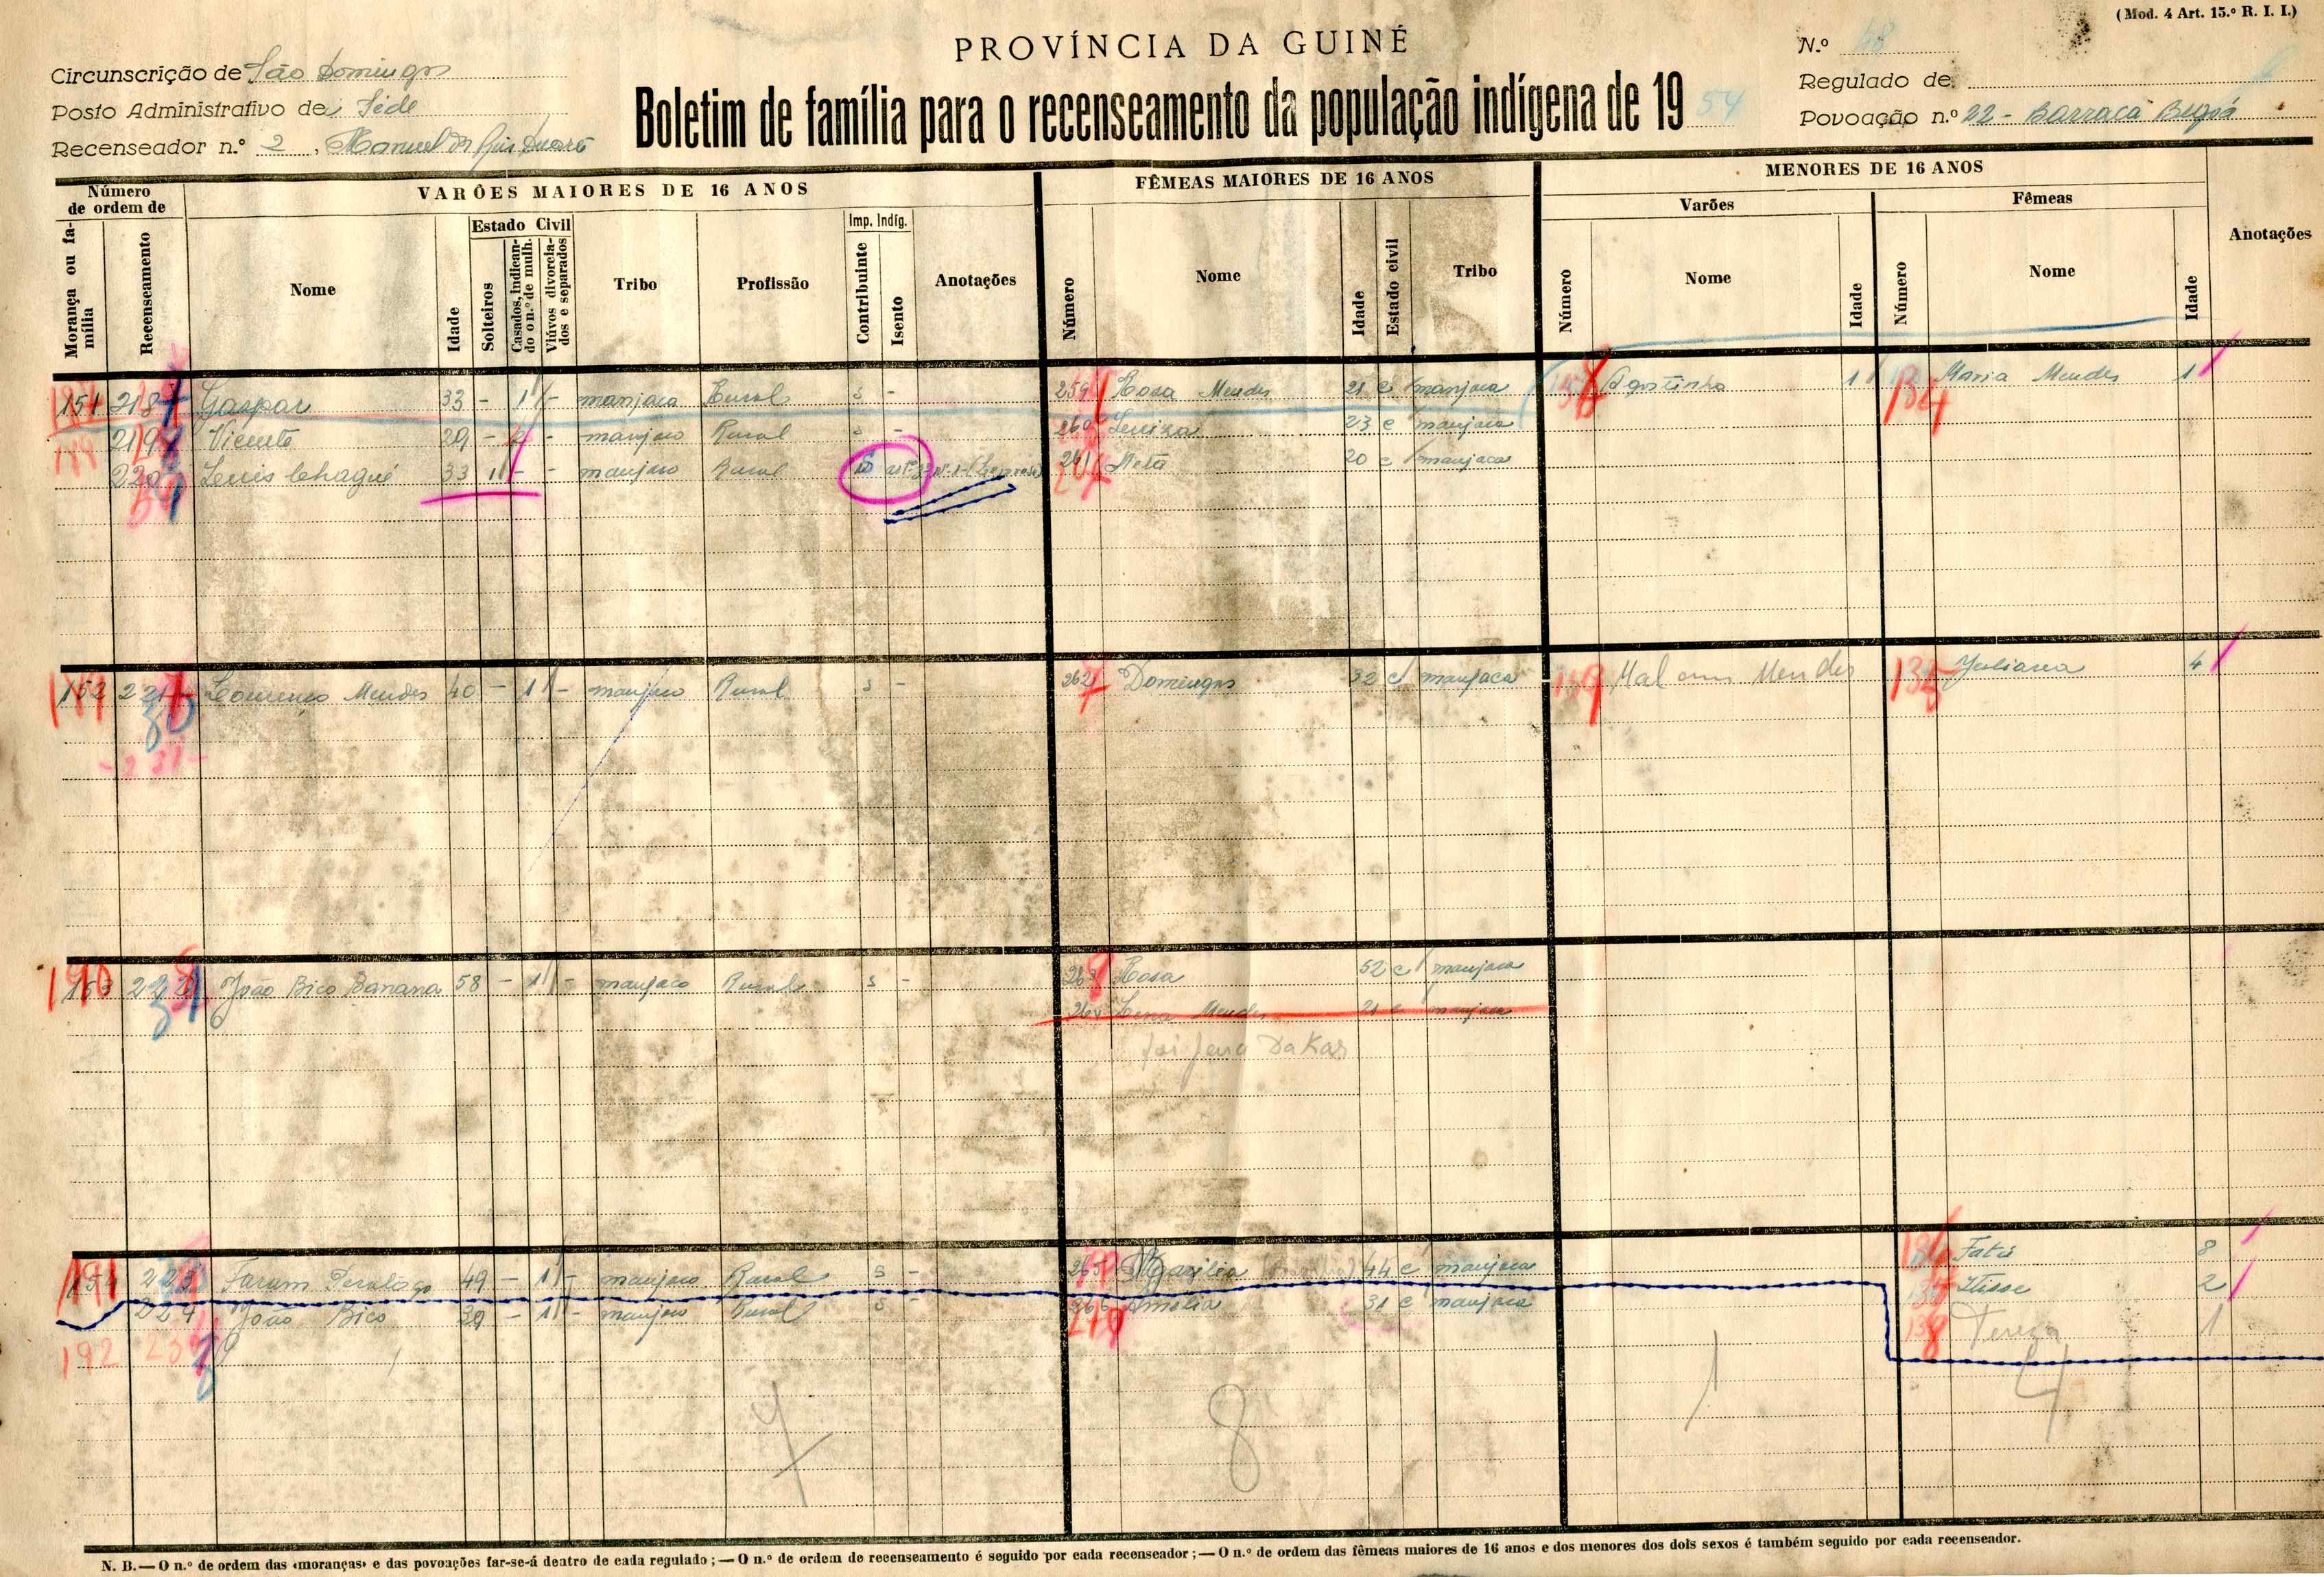 (Mod. 4 Art. 15.º R. I. I.)
PROVÍNCIA DA GUINÉ
Boletim de família para o recenseamento da população indígena de 1954
Circunscrição de São Domingos
Posto Administrativo de Séde
Recenseador n.º 2, Manuel
N.º 48
Regulado de
Povoação n.º 22 - Barraca
Número de ordem de
VARÕES MAIORES DE 16 ANOS
FÊMEAS MAIORES DE 16 ANOS
MENORES DE 16 ANOS
Varões
Fêmeas
Anotações
Morança ou família
Recenseamento
Nome
Idade
Estado Civil
Solteiros
Casados, indicando o n.º de mulh.
Viúvos divorciados e separados
Tribo
Profissão
Imp. Indíg.
Contribuinte
Isento
Anotações
Número
Nome
Idade
Estado civil
Tribo
Número
Nome
Idade
Número
Nome
Idade
151 218 Gaspar 33 - 1 - manjaca Rural s - 259 Rosa Mendes 21 c manjaca Agostinho 1 134 Maria Mendes 1
219 Vicente 29 - - manjaco Rural s - 260 23 c manjaca
220 33 1 - - manjaco Rural 261 Neta 20 c manjaca
152 221 Lourenço Mendes 40 - 1 - manjaco Rural s - 262 Domingas 32 c manjaca 159 Mendes 135 Juliana 4
- 231 -
190
153 222 João Bico Banana 58 - 1 - manjaco Rural s - 263 Rosa 52 c manjaca
264 Mendes 21 c manjaca
foi para Dakar
191
154 223 49 - 1 - manjaco Rural s - 265 44 c manjaca Fatú 8
224 João Bico 39 - 1 - manjaco Rural s - 266 Amélia 31 c manjaca 2
192 138 Tereza 1
8 1 4
N. B. — O n.º de ordem das «moranças» e das povoações far-se-á dentro de cada regulado; — O n.º de ordem de recenseamento é seguido por cada recenseador; — O n.º de ordem das fêmeas maiores de 16 anos e dos menores dos dois sexos é também seguido por cada recenseador.